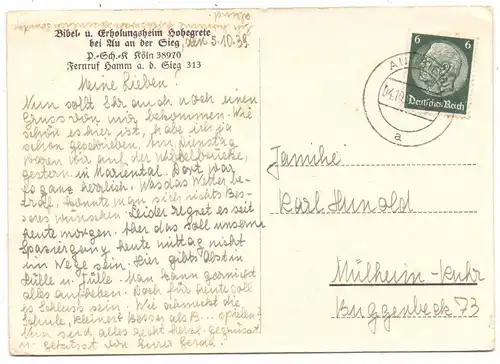 Bibel- u. Erholungsheim Hohegrete
bei Au an der Sieg, den 5.10.39.
P.-Sch.-K Köln 38970
Fernruf Hamm a. d. Sieg 313
Meine Lieben!
Nun sollt Ihr auch noch einen
Gruss von mir bekommen. Wie
schön es hier ist, habe ich ja
schon geschrieben. Am Dienstag
waren wir auf der
gestern in Mariental. Dort war
es ganz herrlich, was das Wetter be-
traf, konnte man sich nichts Bes-
seres wünschen. Leider regnet es seit
heute morgen. Aber das soll unserm
Spaziergang heute mittag nicht
im Wege sein. Hier gibts Obst in
Hülle u. Fülle. Man kann garnicht
alles aufheben. Doch für heute soll
es Schluss sein. Wie schmeckt die
Schule, kleinert Besser als
Nun seid alle recht herzl. gegrüsst
u. geküsst von Eurer
6 6
Deutsches Reich
AU
04.10
a
Familie
Karl Hunold
Mülheim-Ruhr
Buggenbeck 73